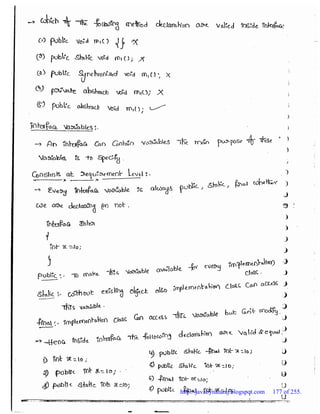 → Which of the following method declaration are valied inside Interface
(1) public void m1() { } X
(2) public static void m1(); X
(3) public Synchronized void m1(); X
(4) private abstract void m1(); X
(5) public abstract void m1(); ✓
Interface Variables :-
→ An Interface can contain variables The main purpose of these
Variables is to specify
Constants at Requirement Level :-
→ Every Interface variable is always public, static, final whether
we are declaring or not.
Interface Inter
{
int x = 10;
}
public :- To make this variable available for every implementation
class.
static :- without existing object also implementation class can access
this variable.
final :- implementation class can access this variable but can't modify.
→ Hence inside interface the following declaration are valid & equal
1) int x = 10;
2) public int x = 10;
3) public static int x = 10;
4) public static final int x = 10;
5) public static int x = 10;
6) final int x = 10;
177 of 255.